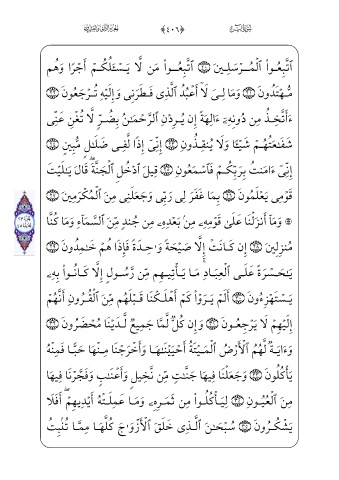 ٱتَّبِعُوا۟ ٱلْمُرْسَلِينَ ٱتَّبِعُوا۟ مَن لَّا يَسْـَٔلُكُمْ أَجْرًا وَهُم
مُّهْتَدُونَ وَمَا لِىَ لَآ أَعْبُدُ ٱلَّذِى فَطَرَنِى وَإِلَيْهِ تُرْجَعُونَ
ءَأَتَّخِذُ مِن دُونِهِۦٓ ءَالِهَةً إِن يُرِدْنِ ٱلرَّحْمَٰنُ بِضُرٍّ لَّا تُغْنِ عَنِّى
شَفَٰعَتُهُمْ شَيْـًٔا وَلَا يُنقِذُونِ إِنِّىٓ إِذًا لَّفِى ضَلَٰلٍ مُّبِينٍ
إِنِّىٓ ءَامَنتُ بِرَبِّكُمْ فَٱسْمَعُونِ قِيلَ ٱدْخُلِ ٱلْجَنَّةَ ۖ قَالَ يَٰلَيْتَ
قَوْمِى يَعْلَمُونَ بِمَا غَفَرَ لِى رَبِّى وَجَعَلَنِى مِنَ ٱلْمُكْرَمِينَ
۞ وَمَآ أَنزَلْنَا عَلَىٰ قَوْمِهِۦ مِنۢ بَعْدِهِۦ مِن جُندٍ مِّنَ ٱلسَّمَآءِ وَمَا كُنَّا
مُنزِلِينَ إِن كَانَتْ إِلَّا صَيْحَةً وَٰحِدَةً فَإِذَا هُمْ خَٰمِدُونَ
يَٰحَسْرَةً عَلَى ٱلْعِبَادِ ۚ مَا يَأْتِيهِم مِّن رَّسُولٍ إِلَّا كَانُوا۟ بِهِۦ
يَسْتَهْزِءُونَ أَلَمْ يَرَوْا۟ كَمْ أَهْلَكْنَا قَبْلَهُم مِّنَ ٱلْقُرُونِ أَنَّهُمْ
إِلَيْهِمْ لَا يَرْجِعُونَ وَإِن كُلٌّ لَّمَّا جَمِيعٌ لَّدَيْنَا مُحْضَرُونَ
وَءَايَةٌ لَّهُمُ ٱلْأَرْضُ ٱلْمَيْتَةُ أَحْيَيْنَٰهَا وَأَخْرَجْنَا مِنْهَا حَبًّا فَمِنْهُ
يَأْكُلُونَ وَجَعَلْنَا فِيهَا جَنَّٰتٍ مِّن نَّخِيلٍ وَأَعْنَٰبٍ وَفَجَّرْنَا فِيهَا
مِنَ ٱلْعُيُونِ لِيَأْكُلُوا۟ مِن ثَمَرِهِۦ وَمَا عَمِلَتْهُ أَيْدِيهِمْ ۖ أَفَلَا
يَشْكُرُونَ سُبْحَٰنَ ٱلَّذِى خَلَقَ ٱلْأَزْوَٰجَ كُلَّهَا مِمَّا تُنۢبِتُ